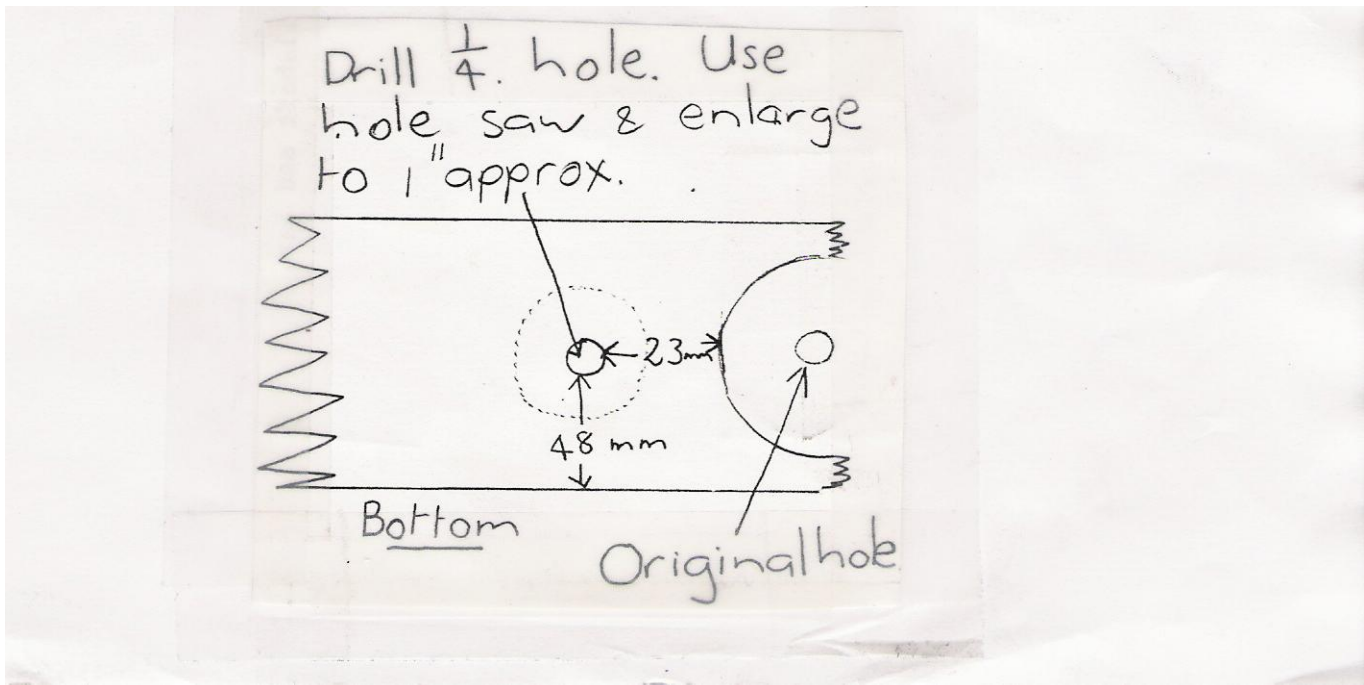 Drill 1/4. hole. Use
hole saw & enlarge
to 1" approx.
23mm
48 mm
Bottom
Original hole